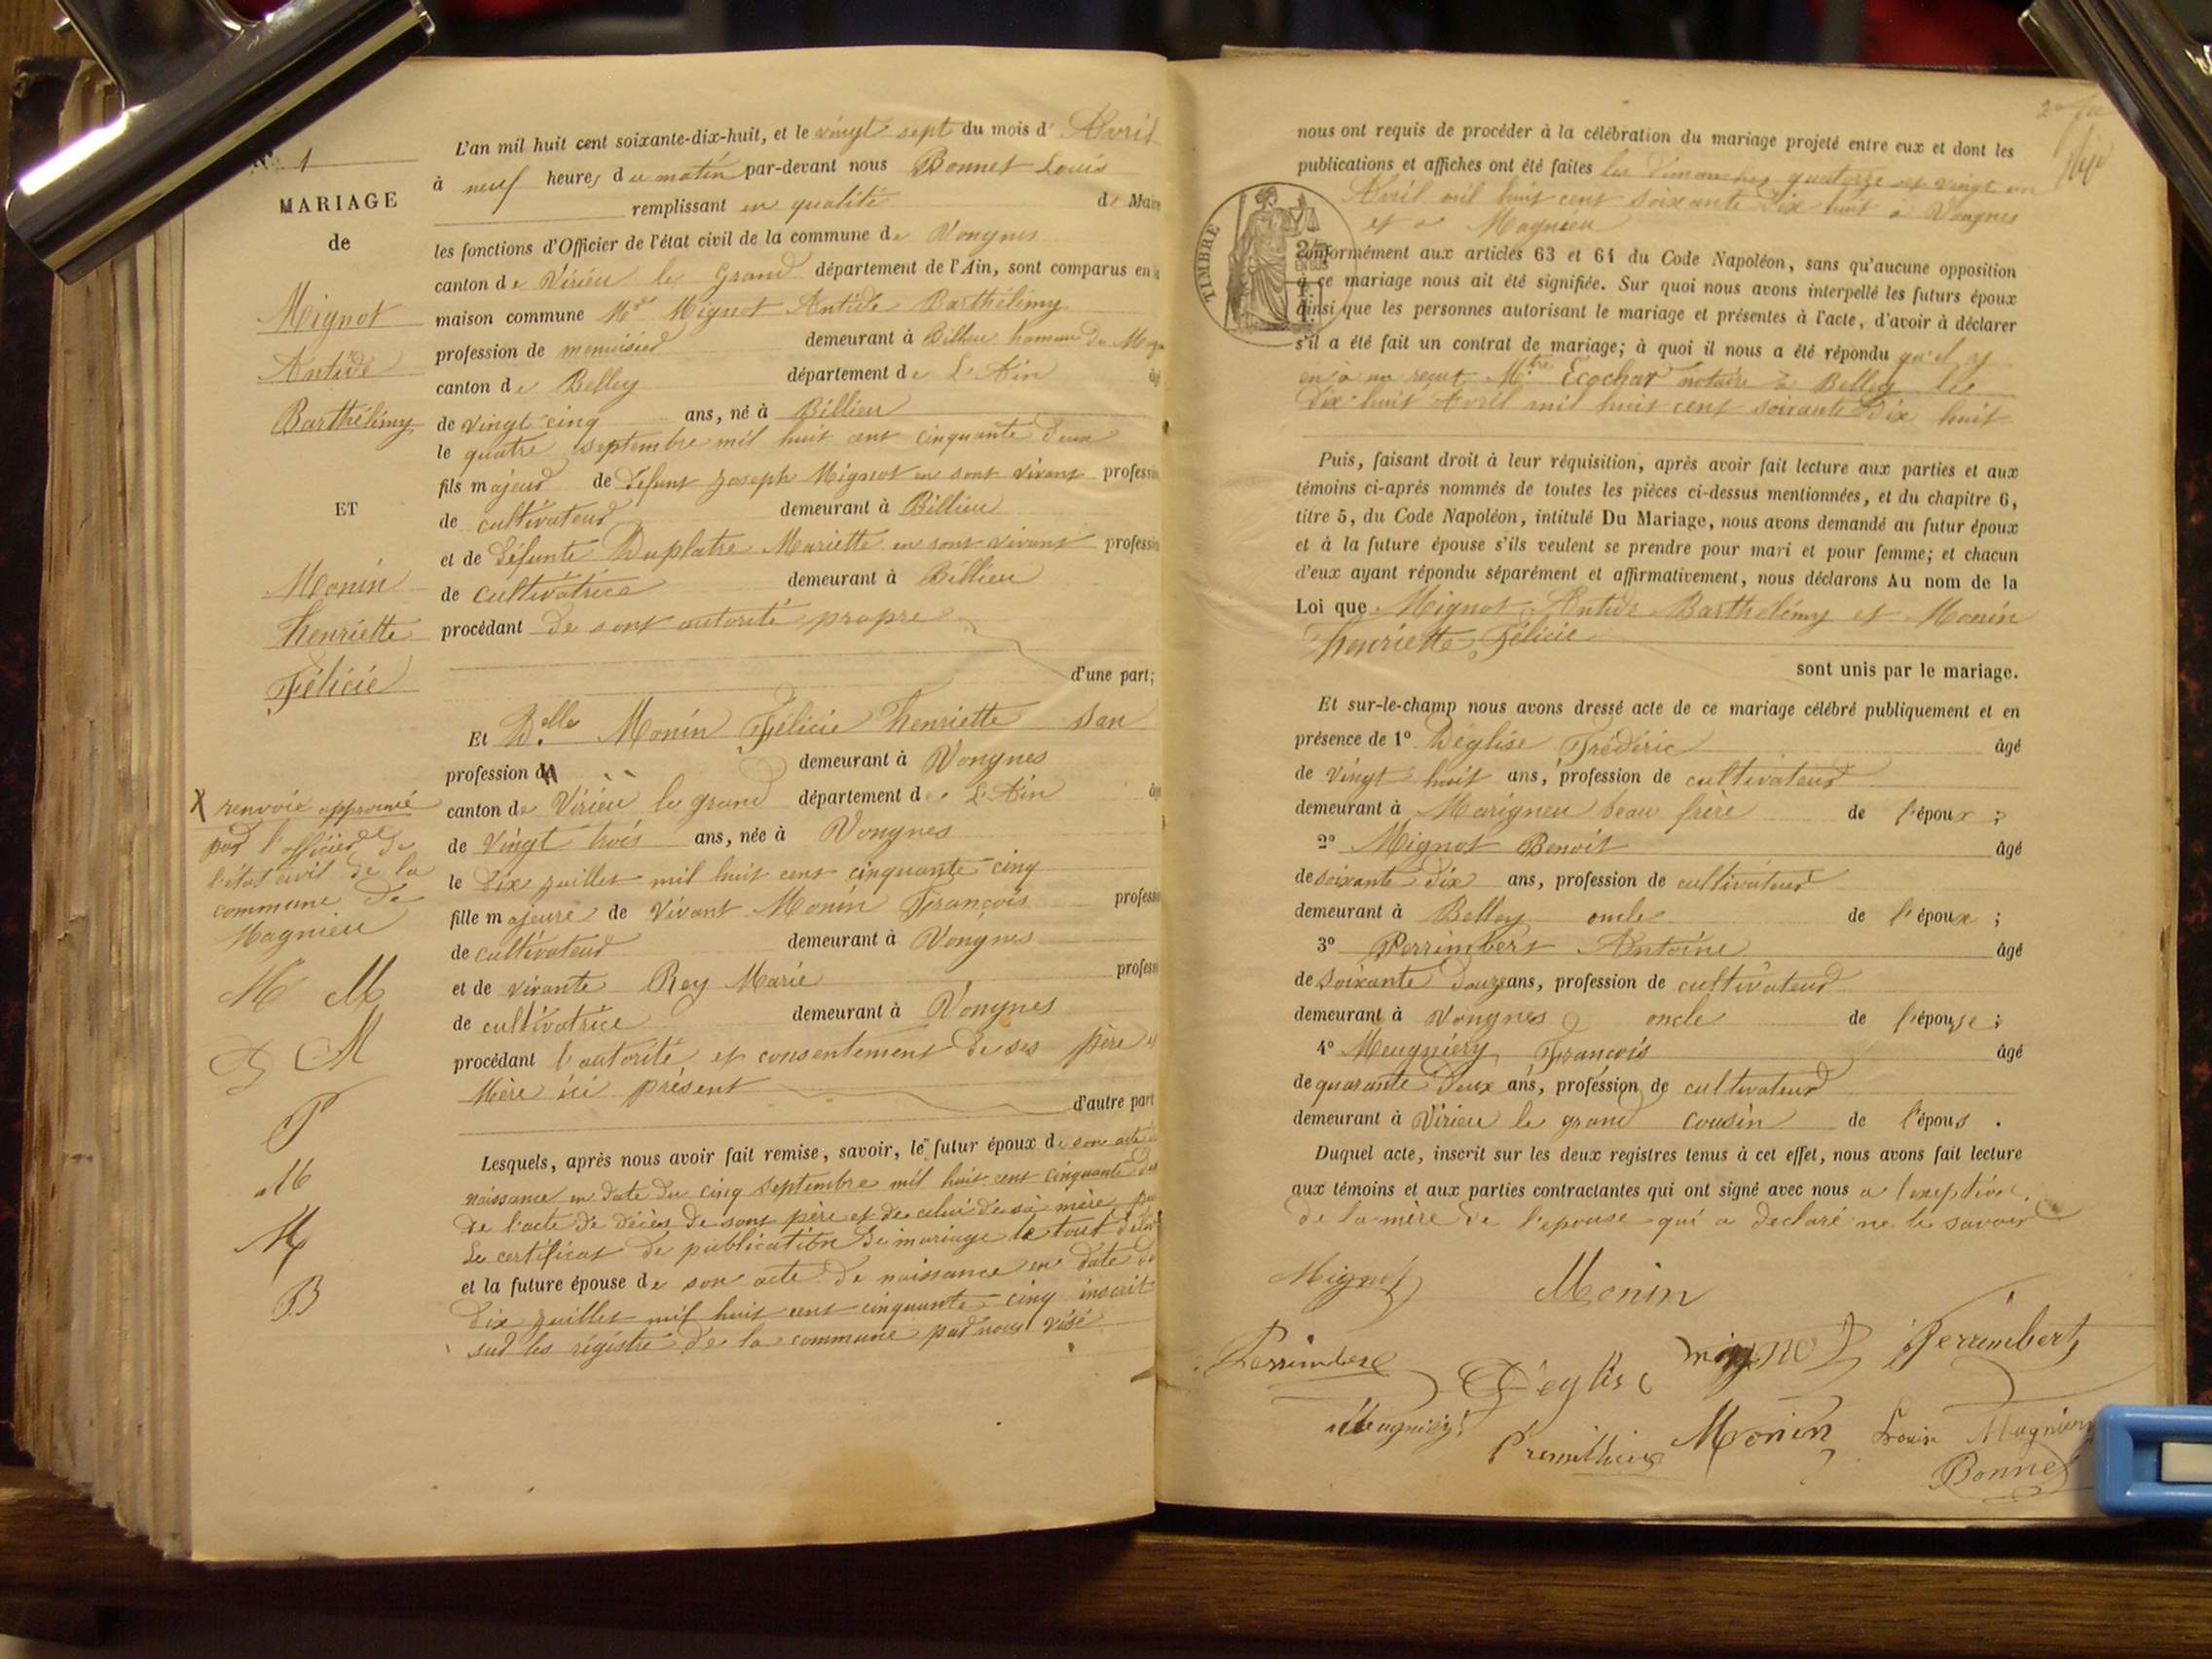 N° 1
MARIAGE
de
Mignot
Antide
Barthélémy
ET
Monin
henriette
Félicie
X renvoie approuvé
par l'officier de
l'état civil de la
commune de
Magnieu
M M
D M
P
M
M
B
L'an mil huit cent soixante-dix-huit, et le vingt sept du mois d' Avril
à neuf heures du matin par-devant nous Bonnet Louis
remplissant en qualité de Maire
les fonctions d'Officier de l'état civil de la commune de Vongnes
canton de Virieu le Grand département de l'Ain, sont comparus en la
maison commune Mr Mignot Antide Barthélémy
profession de menuisier demeurant à Billieu hameau de
canton de Belley département de L'Ain
de vingt cinq ans, né à Billieu
le quatre septembre mil huit cent cinquante deux
fils majeur de defunt Joseph Mignot en sont vivant profession
de cultivateur demeurant à Billieu
et de défunte Duplatre Mariette en sont vivant profession
de cultivatrice demeurant à Billieu
procédant de sont autorité propre
d'une part;
Et Delle Monin Félicie henriette san
profession demeurant à Vongnes
canton de Virieu le grand département de L'Ain
de vingt trois ans, née à Vongnes
le dix juillet mil huit cent cinquante cinq
fille majeure de vivant Monin François profession
de cultivateur demeurant à Vongnes
et de vivante Rey Marie profession
de cultivatrice demeurant à Vongnes
procédant l'autorité et consentement de ses père et
Mère ici présent
d'autre part
Lesquels, après nous avoir fait remise, savoir, le futur époux de son acte
naissance en date du cinq septembre mil huit cent cinquante
de l'acte de décès de sont père et de celui de sa mère
Le certificat de publication de mariage le tout
et la future épouse de son acte de naissance en date du
dix juillet mil huit cent cinquante cinq inscrit
sur les régistre de la commune par nous visé
nous ont requis de procéder à la célébration du mariage projeté entre eux et dont les
publications et affiches ont été faites les Dimanches quatorze et vingt un
Avril mil huit cent soixante dix huit à Vongnes
et à Magnieu
TIMBRE
conformément aux articles 63 et 64 du Code Napoléon, sans qu'aucune opposition
à ce mariage nous ait été signifiée. Sur quoi nous avons interpellé les futurs époux
ainsi que les personnes autorisant le mariage et présentes à l'acte, d'avoir à déclarer
s'il a été fait un contrat de mariage; à quoi il nous a été répondu qu'il y
en a un reçut Mtre Ecochat notaire à Belley le
dix huit Avril mil huit cent soixante dix huit
Puis, faisant droit à leur réquisition, après avoir fait lecture aux parties et aux
témoins ci-après nommés de toutes les pièces ci-dessus mentionnées, et du chapitre 6,
titre 5, du Code Napoléon, intitulé Du Mariage, nous avons demandé au futur époux
et à la future épouse s'ils veulent se prendre pour mari et pour femme; et chacun
d'eux ayant répondu séparément et affirmativement, nous déclarons Au nom de la
Loi que Mignot Antide Barthelémy et Monin
henriette Félicie
sont unis par le mariage.
Et sur-le-champ nous avons dressé acte de ce mariage célébré publiquement et en
présence de 1° Déglise Frédéric âgé
de vingt huit ans, profession de cultivateur
demeurant à Marigneu beau frère de l'époux ;
2° Mignot Benoit âgé
de soixante dix ans, profession de cultivateur
demeurant à Belley oncle de l'époux ;
3° Perrimbert Antoine âgé
de soixante douze ans, profession de cultivateur
demeurant à Vongnes oncle de l'épouse ;
4° Meugniery François âgé
de quarante deux ans, profession de cultivateur
demeurant à Virieu le grand cousin de l'épous .
Duquel acte, inscrit sur les deux registres tenus à cet effet, nous avons fait lecture
aux témoins et aux parties contractantes qui ont signé avec nous a l'exeption
de la mère de l'epouse qui a declaré ne le savoir
Mignot Monin
Perrimbert Déglise mignot Perrimbert
Meugniery Premillieu Monin Louise Mugnier
Bonnet